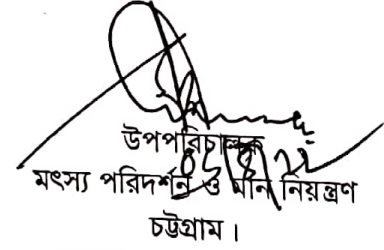 উপপরিচালক
মৎস্য পরিদর্শন ও মান নিয়ন্ত্রণ
চট্টগ্রাম।